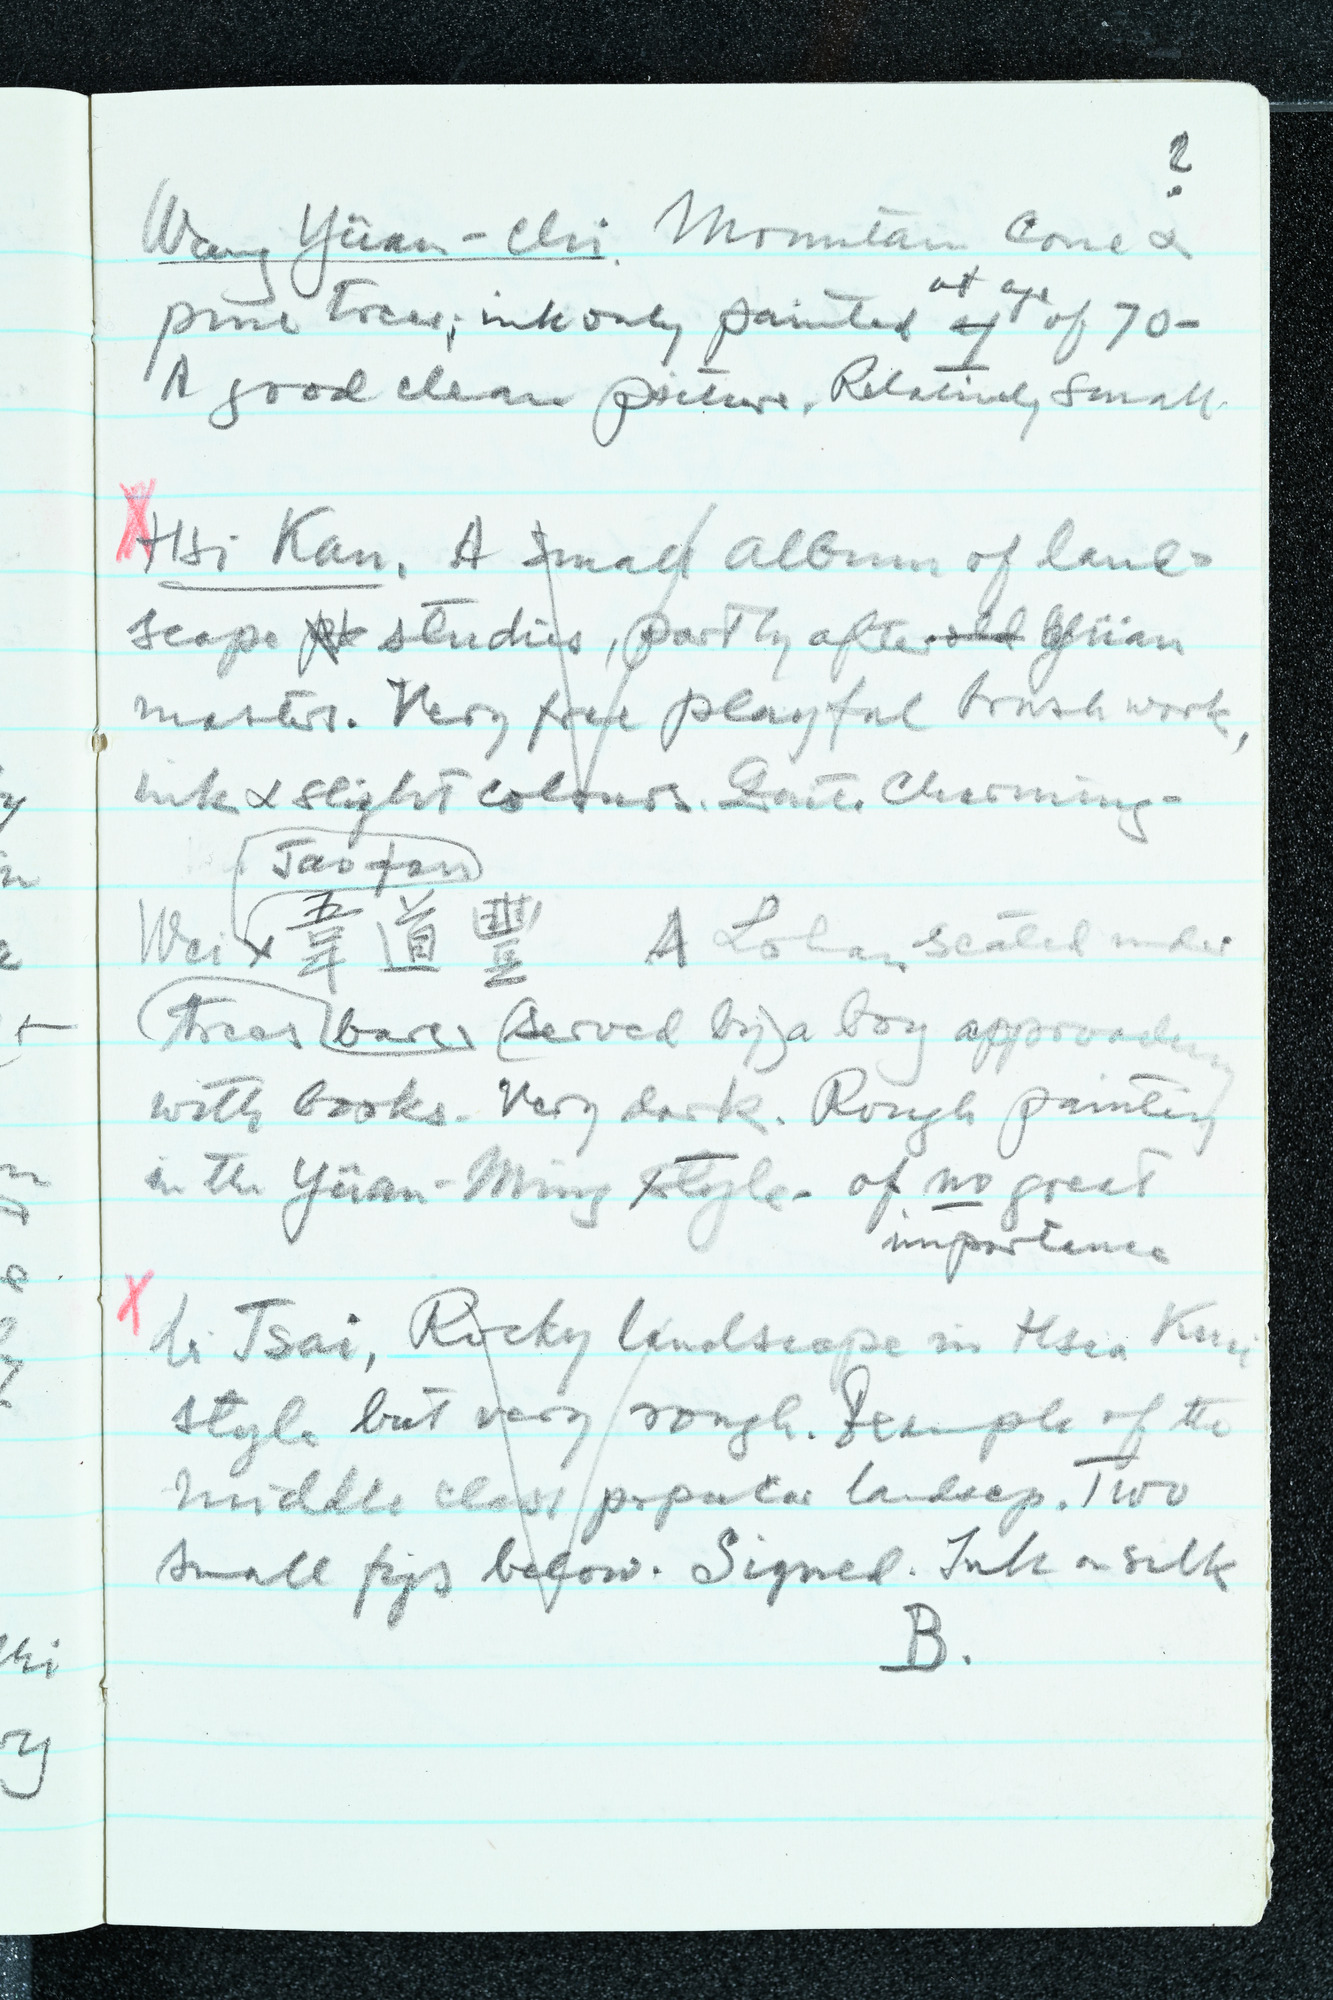 ?
Wang Yüan-chi. Mountain Cone &
pine trees; ink only painted at age of 70-
A good clean picture. Relatively small.
X Hsi Kan. A small album of land-
scape studies, partly after old Yüan
masters. Very free playful brushwork,
ink & slight colours. Quite charming-
Tao-fen
Wei x 韋道豐 A Lohan seated under
trees bares (served by) a boy approaching
with books. Very dark. Rough painting
in the Yüan-Ming style- of no great
importance
X Li Tsai, Rocky landscape in Hsia Kuei
style but very rough. Example of the
middle class popular landscp. Two
small figs below. Signed. Ink on silk
B.